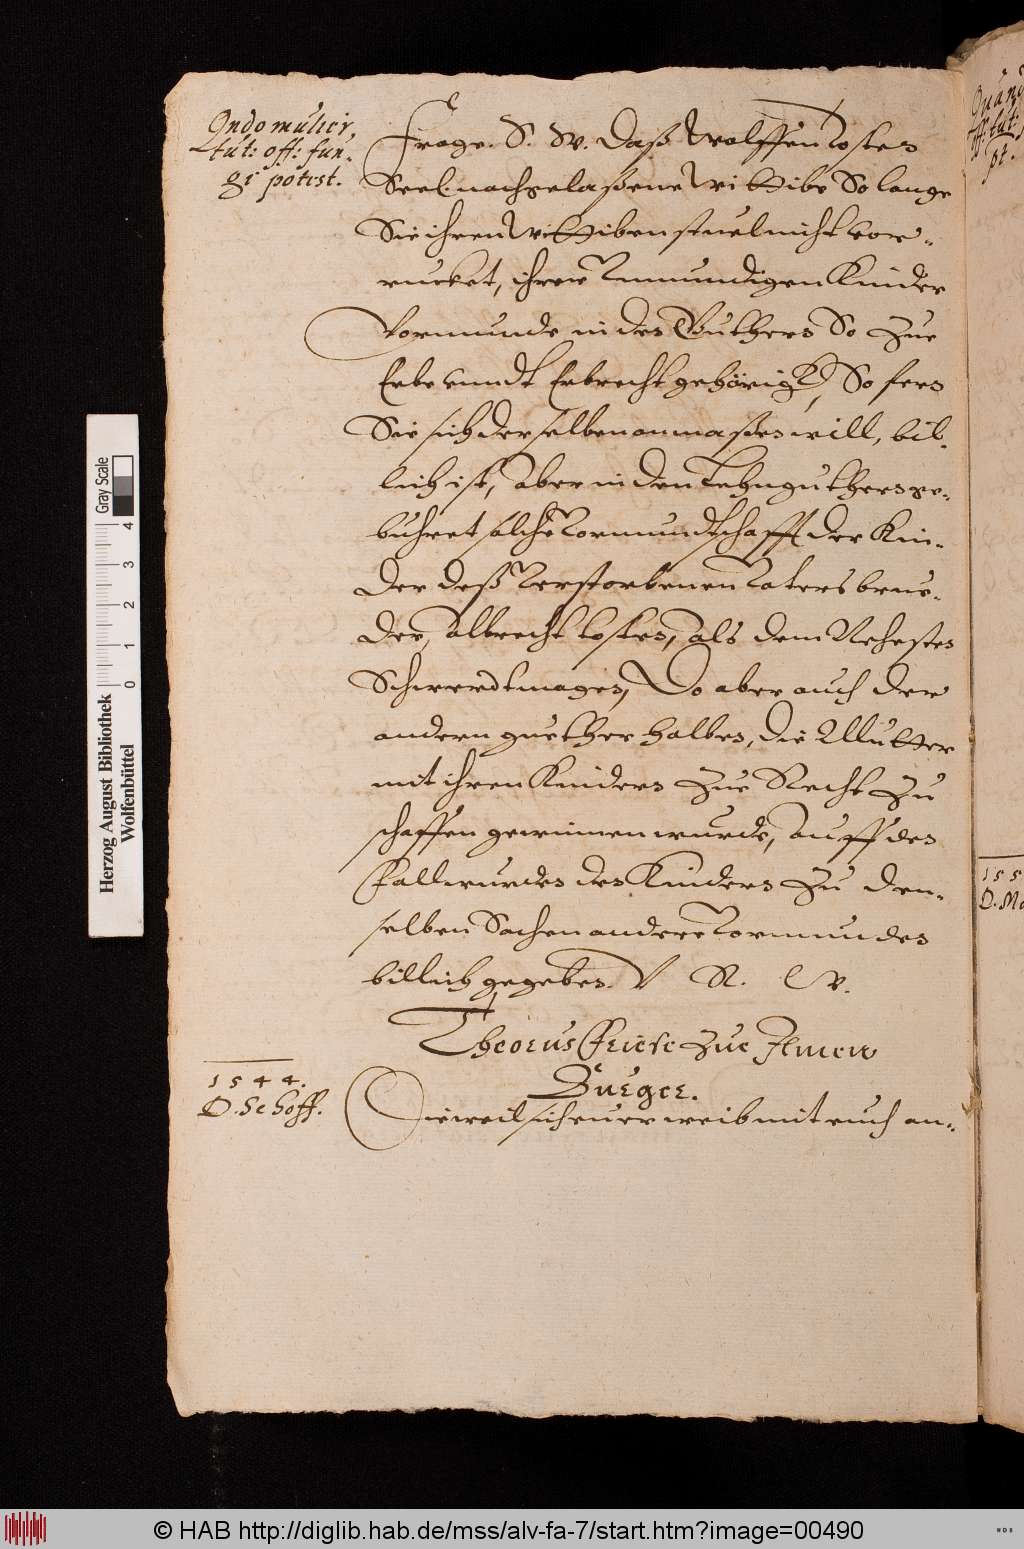 Qndo mulier
tut: off: fun-
gi potest.
Frage. S. W. Daß Wolffen Losten
Seel. nachgelaßene Wittibe So lange
Sie ihren Wittibenstuel nicht vor-
rucket, ihrer Vnmundigen Kinder
Vormunde in des Guthern So zue
Erbe vnndt Erbrecht gehörigk, So fern
Sie sich derselben anmaßen will, bil-
lich ist, Aber in den Lehnguthern ge-
buhret solche Vormundtschafft der Kin-
der deß Verstorbenen Vaters brue-
der, Albrecht Losten, als dem Nehesten
Schwerdtmagen, Do aber auch der
andern guether halben, die Mutter
mit ihren Kindern zue Recht zu
schaffen gewinnen wurde, Auff den
Fall wurden den Kindern zu den-
selben Sachen andere Vormunden
billich gegeben. V R W.
Theorus Friese zue Ilmen
Zuegee.
1544.
D. Schoff.
Dieweil sich euer weib mit euch an-
Quand
off: tut:
pt.
155
D. Mo
Herzog August Bibliothek
Wolfenbüttel
Gray Scale
0 1 2 3 4
© HAB http://diglib.hab.de/mss/alv-fa-7/start.htm?image=00490